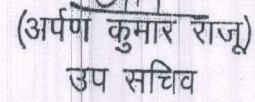 (अर्पण कुमार राजू)
उप सचिव